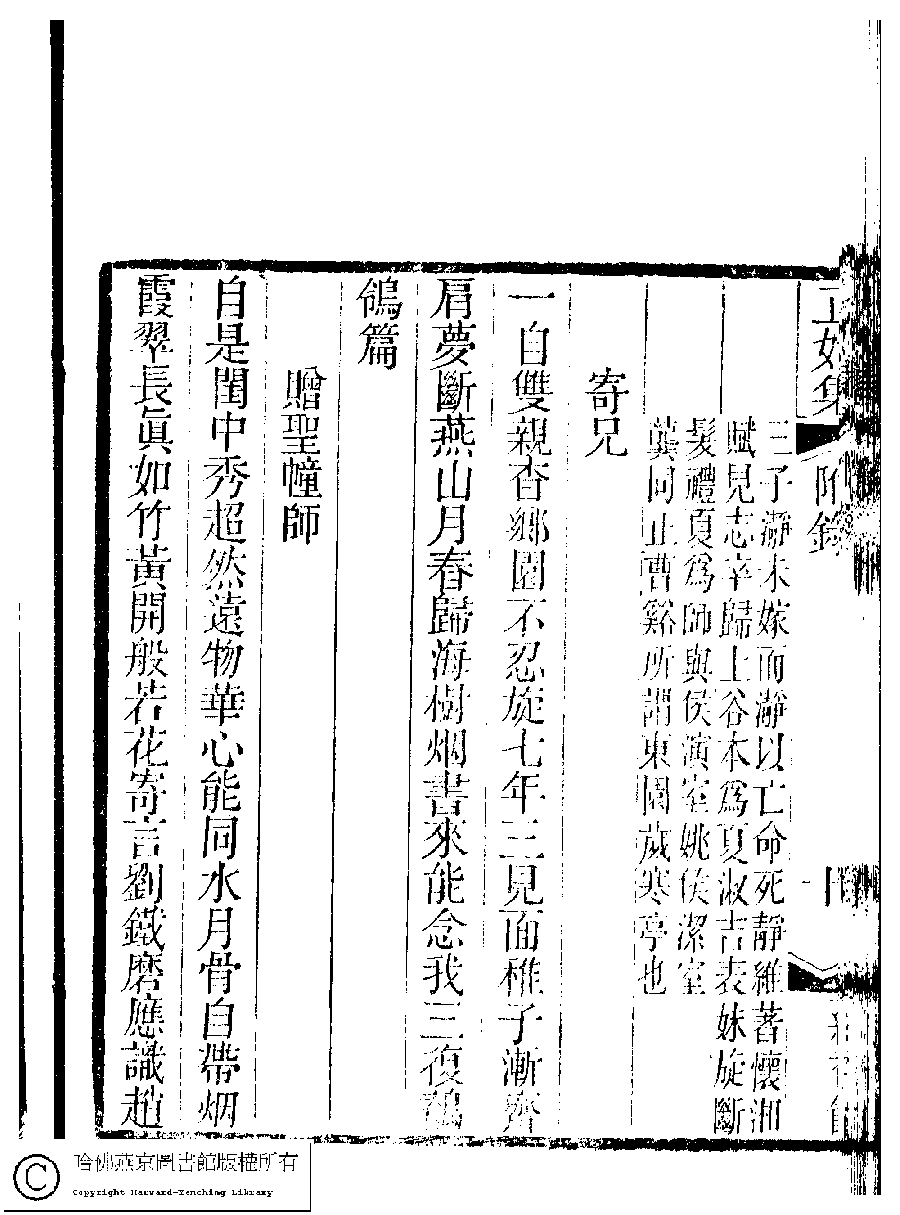 附錄
三子瀞未嫁而瀞以亡命死靜維著懷湘
賦見志卒歸上谷本爲夏淑吉表妹旋斷
髮禮夏爲師與侯演室姚侯潔室
龔同止曹谿所謂東園歲寒亭也
寄兄
一自雙親杳鄉園不忍旋七年三見面稚子漸齊
肩夢斷燕山月春歸海樹烟書來能念我三復鶺
鴒篇
贈聖幢師
自是閨中秀超然遠物華心能同水月骨自帶烟
霞翠長眞如竹黃開般若花寄言劉鐵磨應識趙
哈佛燕京圖書館版權所有
Copyright Harvard-Yenching Library